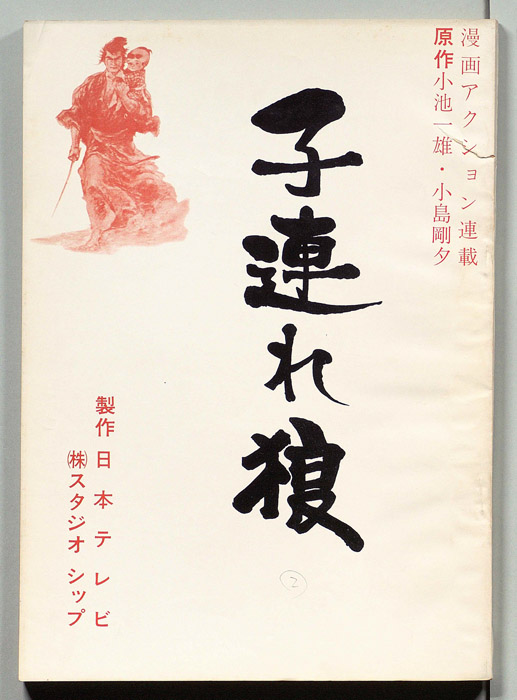 漫画アクション連載
原作小池一雄・小島剛夕
子連れ狼
2
製作日本テレビ
㈱スタジオシップ